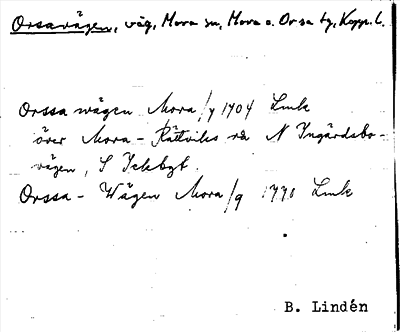 Orsavägen, väg, Mora sn, Mora o. Orsa tg, Kopp. l.
Orssa wägen Mora/y 1704 Lmk
över Mora - Rättviks rå N Ingärdsbo-
vägen, S
Orssa - Wägen Mora/q 1770 Lmk
B. Lindén